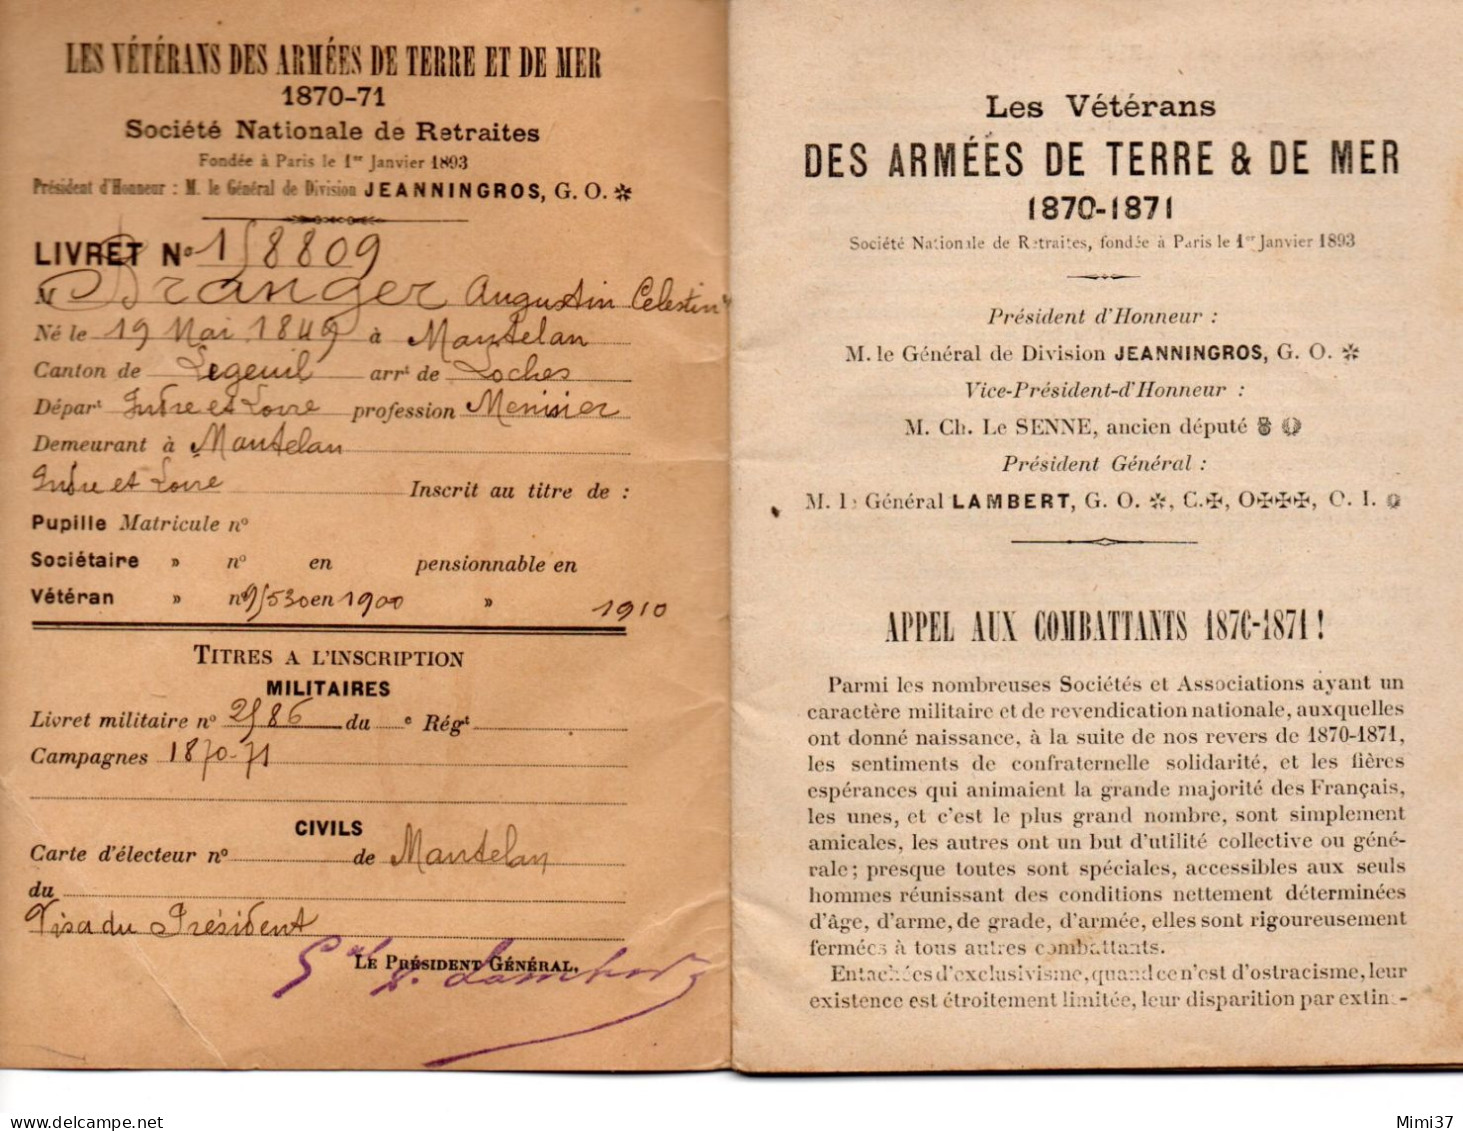 LES VÉTÉRANS DES ARMÉES DE TERRE ET DE MER
1870-71
Société Nationale de Retraites
Fondée à Paris le 1er Janvier 1893
Président d'Honneur : M. le Général de Division JEANNINGROS, G. O. ✲
LIVRET No 158809
M Branger Augustin Celestin
Né le 19 Mai 1849 à Mantelan
Canton de Legeuil arrt de Loches
Départ Indre et Loire profession Menisier
Demeurant à Mantelan
Indre et Loire Inscrit au titre de :
Pupille Matricule no
Sociétaire » no en pensionnable en
Vétéran » no 95530 en 1900 » 1910
TITRES A L'INSCRIPTION
MILITAIRES
Livret militaire no 2586 du e Régt
Campagnes 1870-71
CIVILS
Carte d'électeur no de Mantelan
du
Visa du Président
LE PRÉSIDENT GÉNÉRAL,
Gal Lambert
Les Vétérans
DES ARMÉES DE TERRE & DE MER
1870-1871
Société Nationale de Retraites, fondée à Paris le 1er Janvier 1893
Président d'Honneur :
M. le Général de Division JEANNINGROS, G. O. ✲
Vice-Président-d'Honneur :
M. Ch. Le SENNE, ancien député
Président Général :
M. le Général LAMBERT, G. O. ✲, C.✠, O✠✠✠, O. I.
APPEL AUX COMBATTANTS 1870-1871 !
Parmi les nombreuses Sociétés et Associations ayant un
caractère militaire et de revendication nationale, auxquelles
ont donné naissance, à la suite de nos revers de 1870-1871,
les sentiments de confraternelle solidarité, et les fières
espérances qui animaient la grande majorité des Français,
les unes, et c'est le plus grand nombre, sont simplement
amicales, les autres ont un but d'utilité collective ou géné-
rale ; presque toutes sont spéciales, accessibles aux seuls
hommes réunissant des conditions nettement déterminées
d'âge, d'arme, de grade, d'armée, elles sont rigoureusement
fermées à tous autres combattants.
Entachées d'exclusivisme, quand ce n'est d'ostracisme, leur
existence est étroitement limitée, leur disparition par extinc-
Mimi37